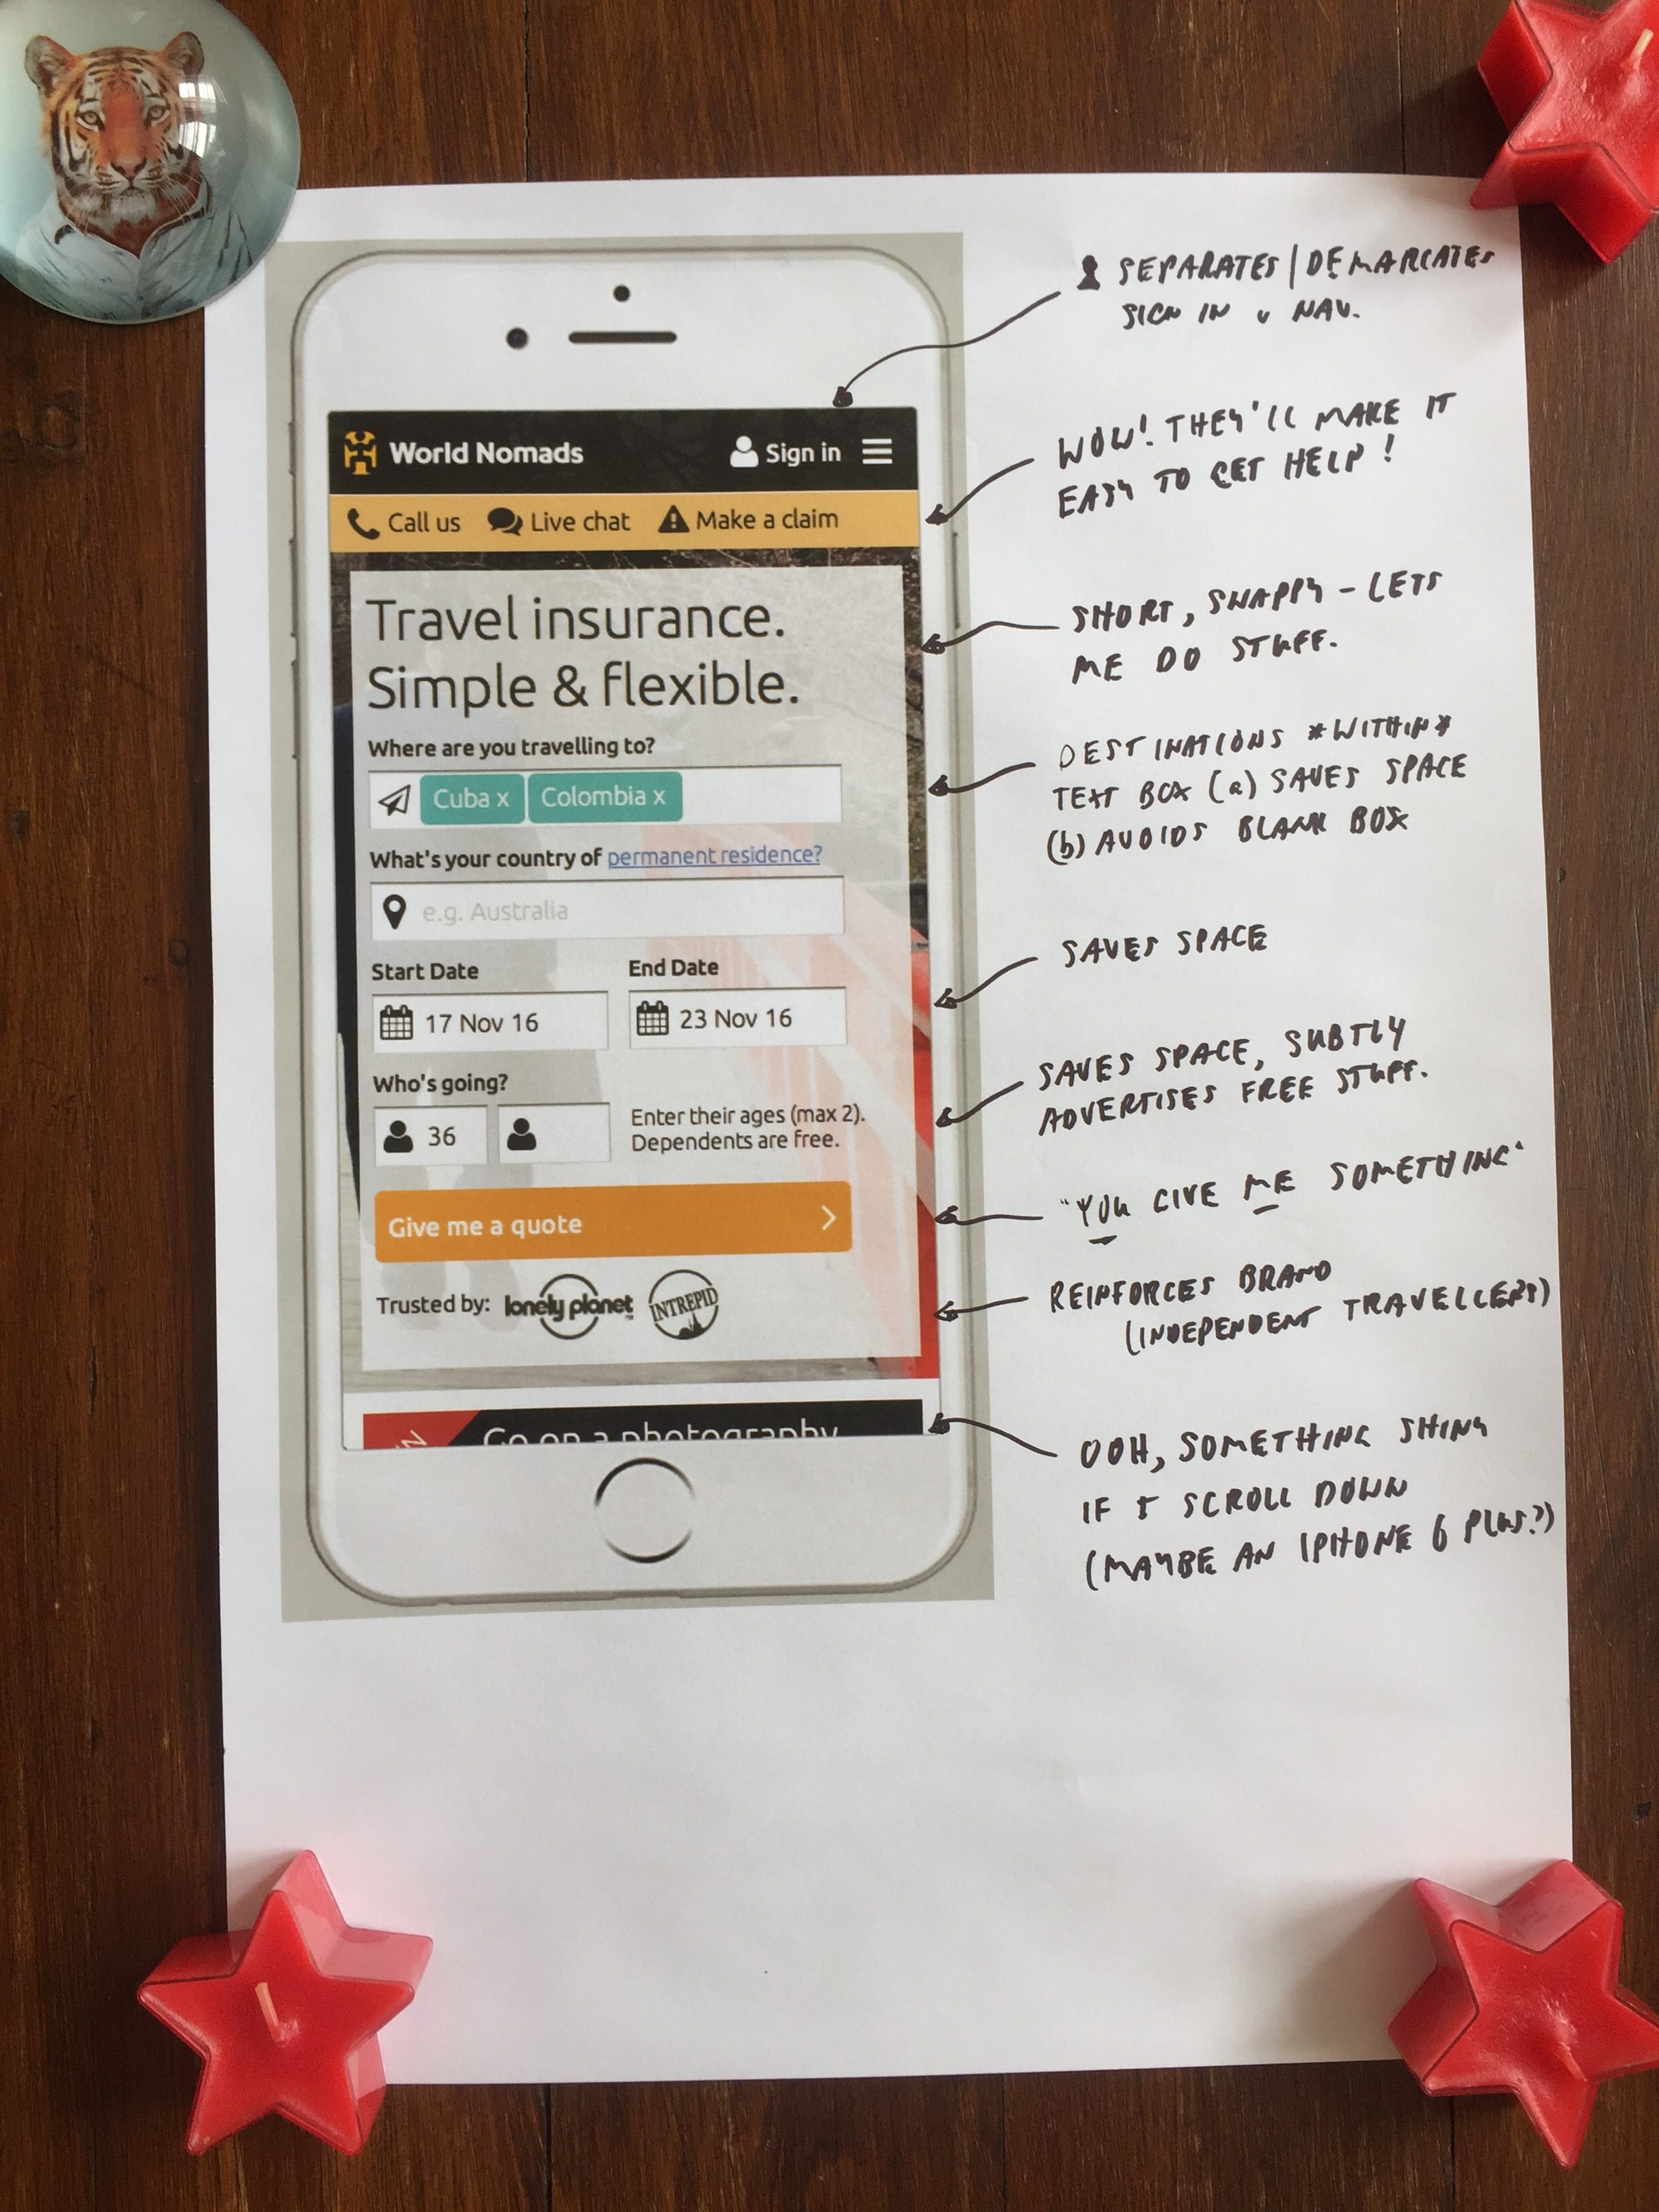 World Nomads
Sign in
Call us
Live chat
Make a claim
Travel insurance.
Simple & flexible.
Where are you travelling to?
Cuba x
Colombia x
What's your country of permanent residence?
e.g. Australia
Start Date
End Date
17 Nov 16
23 Nov 16
Who's going?
36
Enter their ages (max 2).
Dependents are free.
Give me a quote
Trusted by:
lonely planet
INTREPID
Go on a photography
SEPARATES/DEMARCATES
SIGN IN v NAV.
WOW! THEY'LL MAKE IT
EASY TO GET HELP!
SHORT, SNAPPY - LETS
ME DO STUFF.
DESTINATIONS *WITHIN*
TEXT BOX (a) SAVES SPACE
(b) AVOIDS BLANK BOX
SAVES SPACE
SAVES SPACE, SUBTLY
ADVERTISES FREE STUFF.
"YOU GIVE ME SOMETHING"
REINFORCES BRAND
(INDEPENDENT TRAVELLERS)
OOH, SOMETHING SHINY
IF I SCROLL DOWN
(MAYBE AN IPHONE 6 PLUS?)